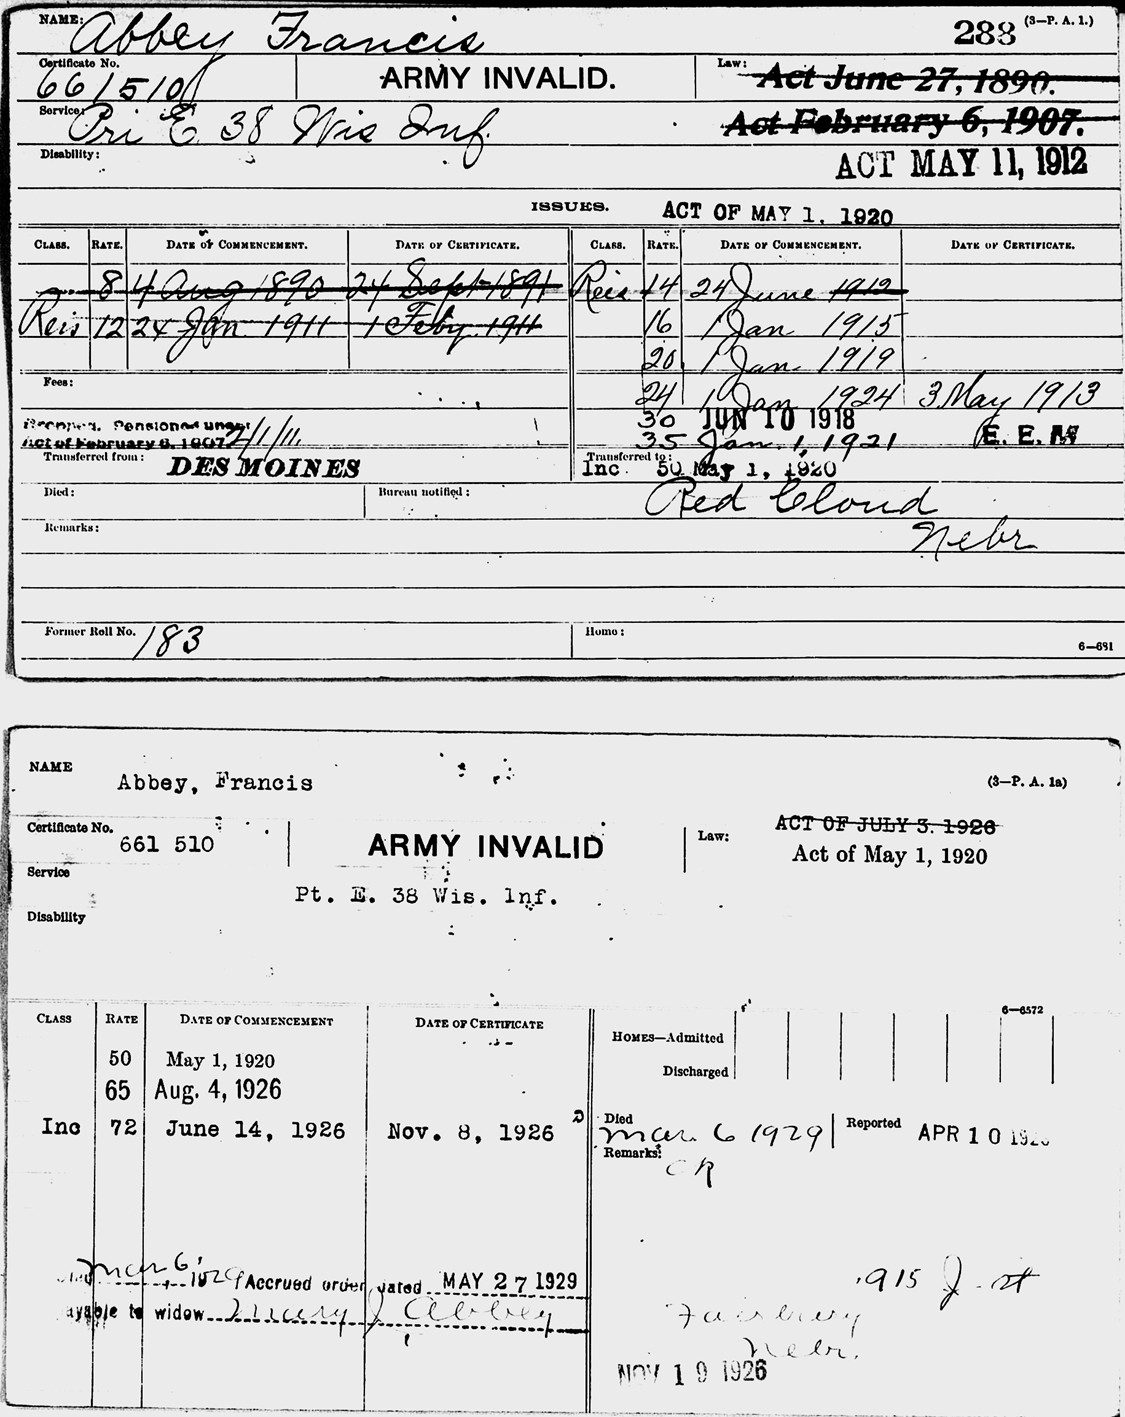 NAME: Abbey Francis 288 (3—P. A. 1.)
Certificate No. 661510 ARMY INVALID. Law: Act June 27, 1890.
Service: Pri E 38 Wis Inf. Act February 6, 1907.
Disability: ACT MAY 11, 1912
ISSUES. ACT OF MAY 1, 1920
CLASS. RATE. DATE OF COMMENCEMENT. DATE OF CERTIFICATE. CLASS. RATE. DATE OF COMMENCEMENT. DATE OF CERTIFICATE.
8 4 Aug 1890 24 Sept 1891 Reis 14 24 June 1912
Reis 12 24 Jan 1911 1 Feby 1911 16 1 Jan 1915
20 1 Jan 1919
Fees: 24 1 Jan 1924 3 May 1913
Dropped. Pensioned under 30 JUN 10 1918
Act of February 6, 1907 2/1/11 35 Jan. 1, 1921 E. E. M
Transferred from: DES MOINES Transferred to:
Inc 50 May 1, 1920
Died: Bureau notified: Red Cloud
Remarks: Nebr
Former Roll No. 183 Home:
6—681
NAME Abbey, Francis (3—P. A. 1a)
Certificate No. 661 510 ARMY INVALID Law: ACT OF JULY 3. 1926
Act of May 1, 1920
Service Pt. E. 38 Wis. Inf.
Disability
CLASS RATE DATE OF COMMENCEMENT DATE OF CERTIFICATE 6—6572
HOMES—Admitted
50 May 1, 1920
Discharged
65 Aug. 4, 1926
Inc 72 June 14, 1926 Nov. 8, 1926 Died Mar. 6 1929 Reported APR 10
Remarks:
Mar 6, 1929 Accrued order dated MAY 27 1929 915 J st
payable to widow Mary J Abbey Fairbury
Nebr.
NOV 19 1926